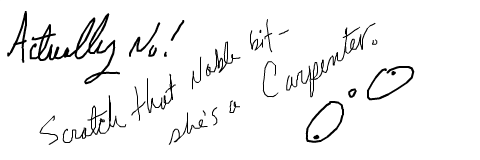 Actually No!
Scratch that Noble bit-
she's a Carpenter.